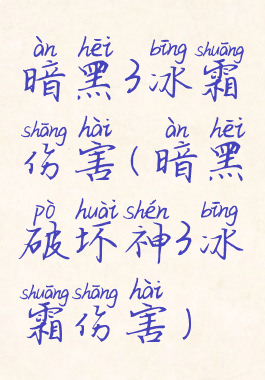 àn hēi bīng shuāng
暗黑3冰霜
shāng hài àn hēi
伤害(暗黑
pò huài shén bīng
破坏神3冰
shuāng shāng hài
霜伤害)